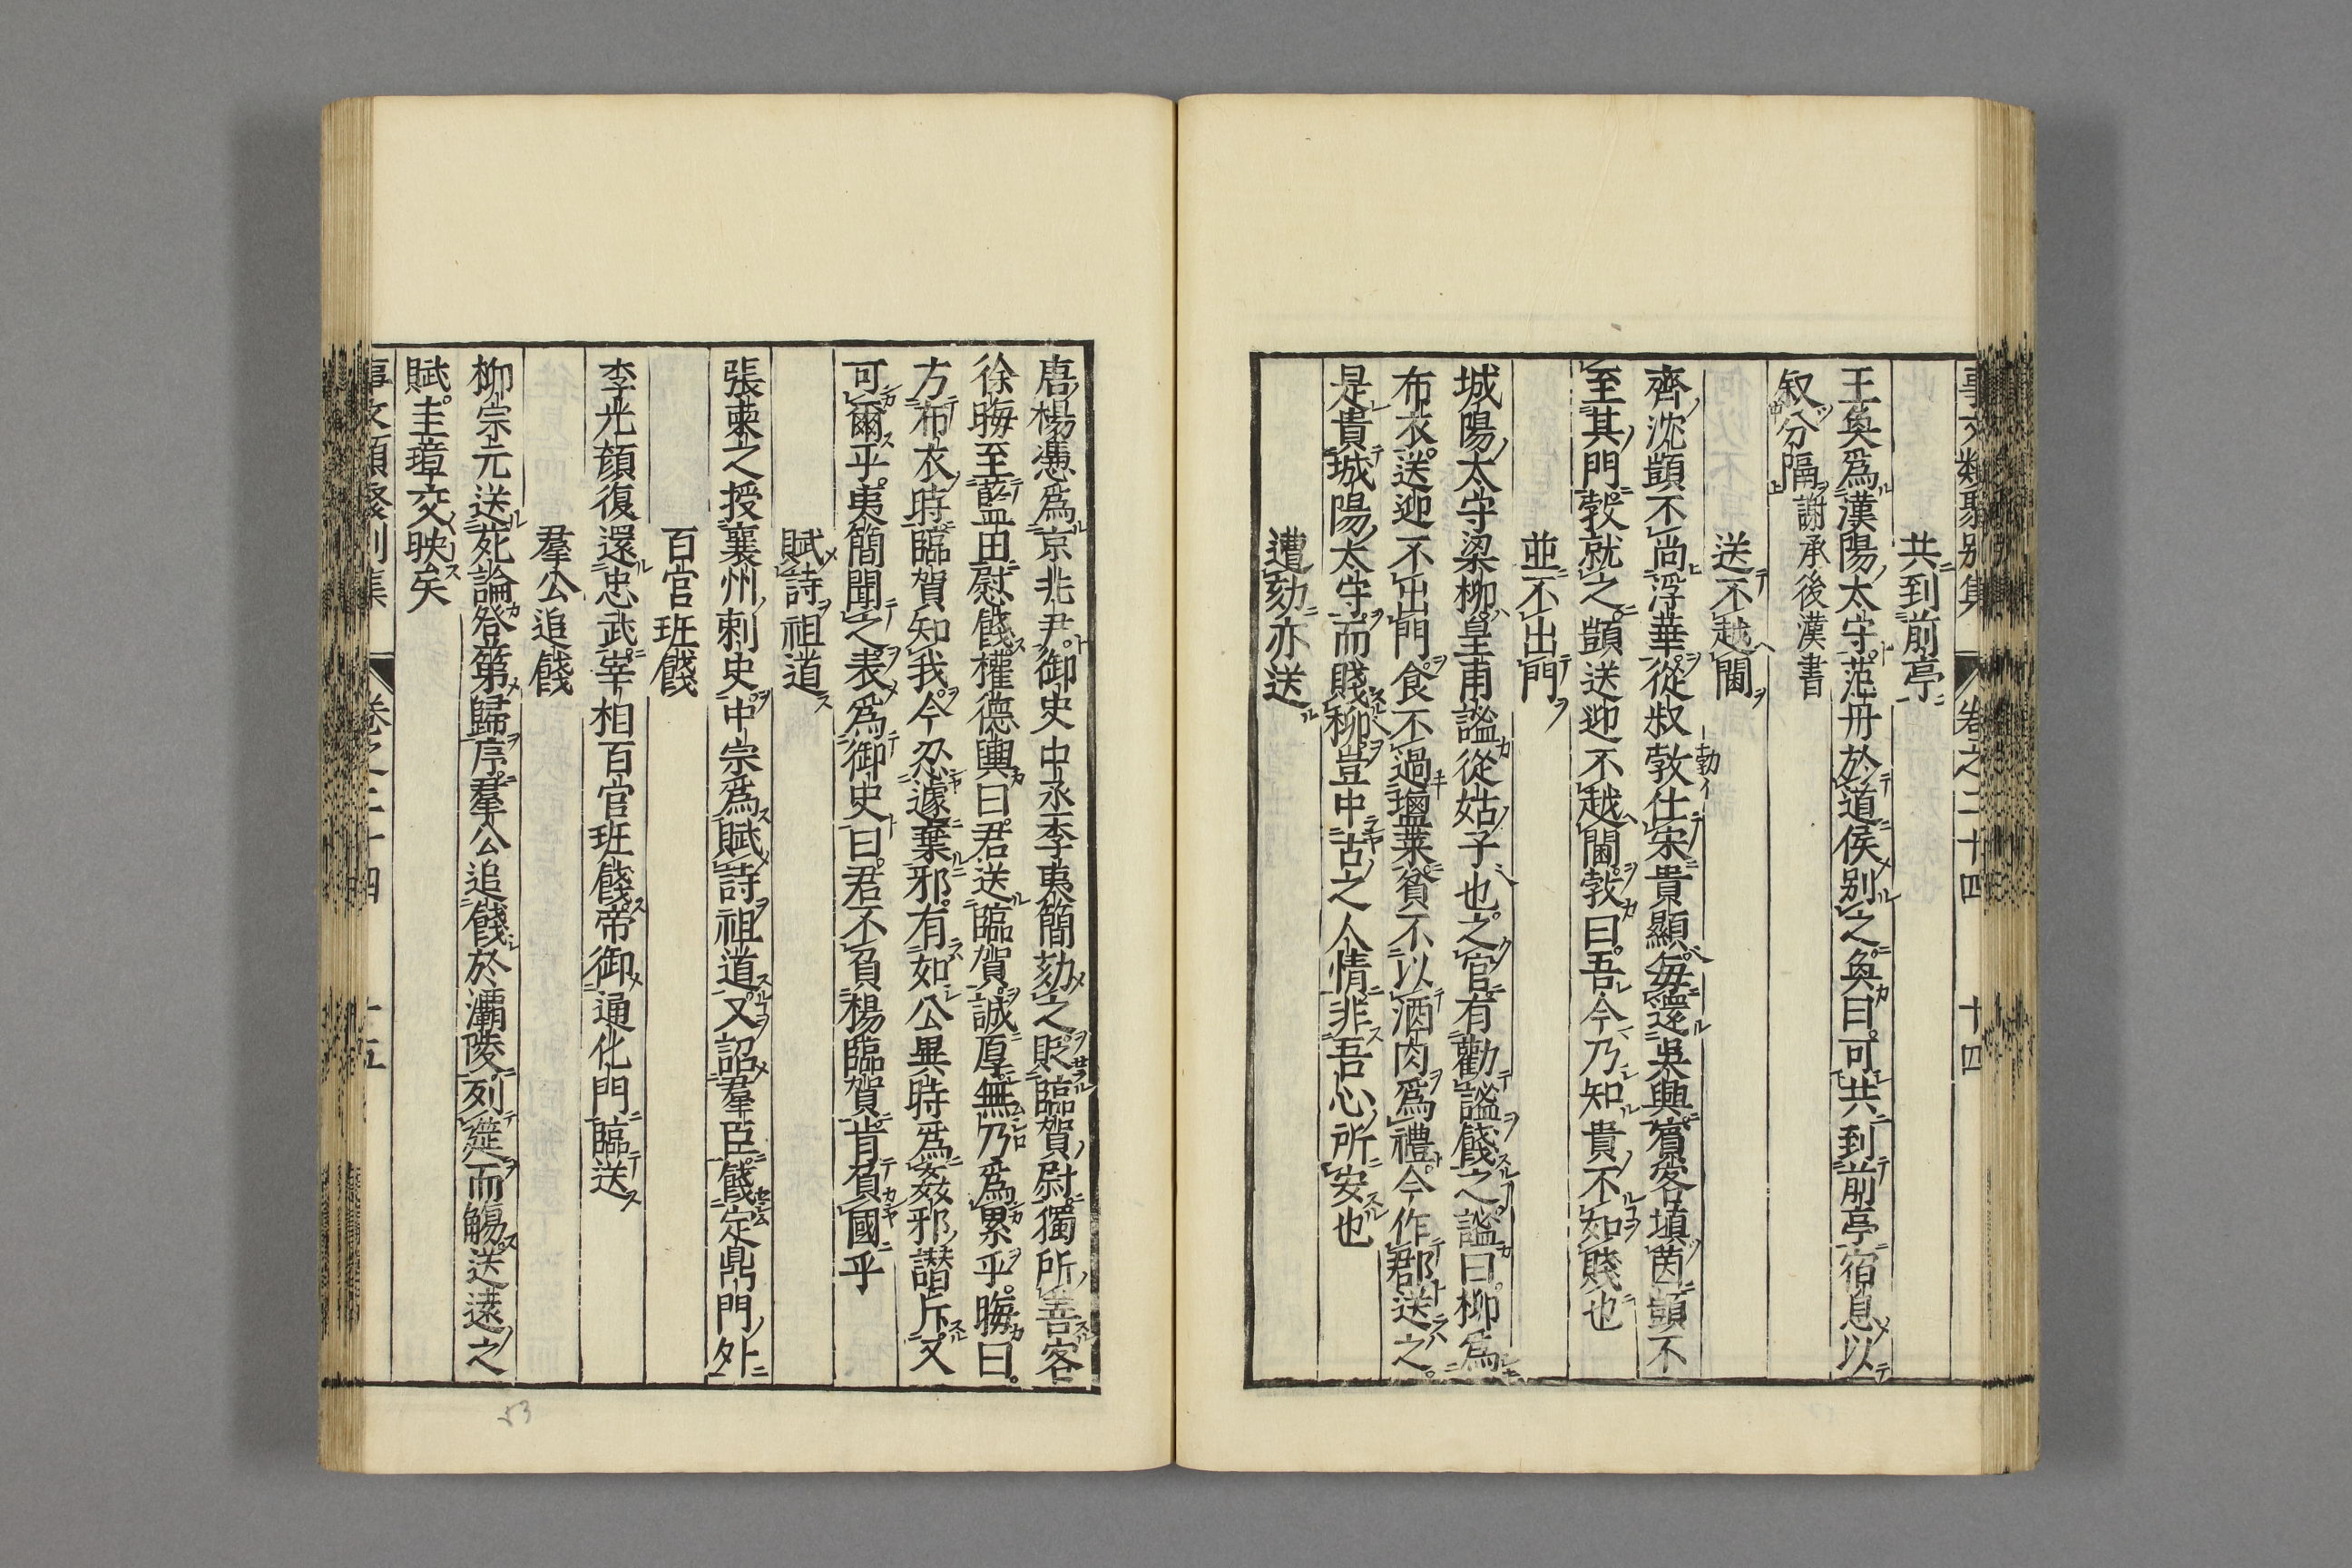 事文類聚別集 卷之二十四 十四
共到前亭
王奐爲漢陽太守范冊於道侯別之奐曰可共到前亭宿息以
叙分隔謝承後漢書
送不越閫
齊沈顗不尚浮華從叔勃仕宋貴顯每還吳興賓客塡茵顗不
至其門敦就之顗送迎不越閫敦曰吾今乃知貴不知賤也
並不出門
城陽太守梁柳皇甫謐從姑子也之官有勸謐餞之謐曰柳爲
布衣送迎不出門食不過鹽菜貧不以酒肉爲禮今作郡送之
是貴城陽太守而賤柳豈中古之人情非吾心所安也
遭劾亦送
唐楊憑爲京兆尹御史中丞李夷簡劾之貶臨賀尉獨所善客
徐晦至藍田慰餞權德輿曰君送臨賀誠厚無乃爲累乎晦曰
方布衣時臨賀知我今忍遽棄邪有如公異時爲姦邪譖斥又
可爾乎夷簡聞之表爲御史曰君不負楊臨賀肯負國乎
賦詩祖道
張柬之授襄州刺史中宗爲賦詩祖道又詔羣臣餞定鼎門外
百官班餞
李光顔復還忠武宰相百官班餞帝御通化門臨送
羣公追餞
柳宗元送苑論登第歸序羣公追餞於灞陵列筵而觴送遠之
賦圭璋交映矣
事文類聚別集 卷之二十四 十五
53